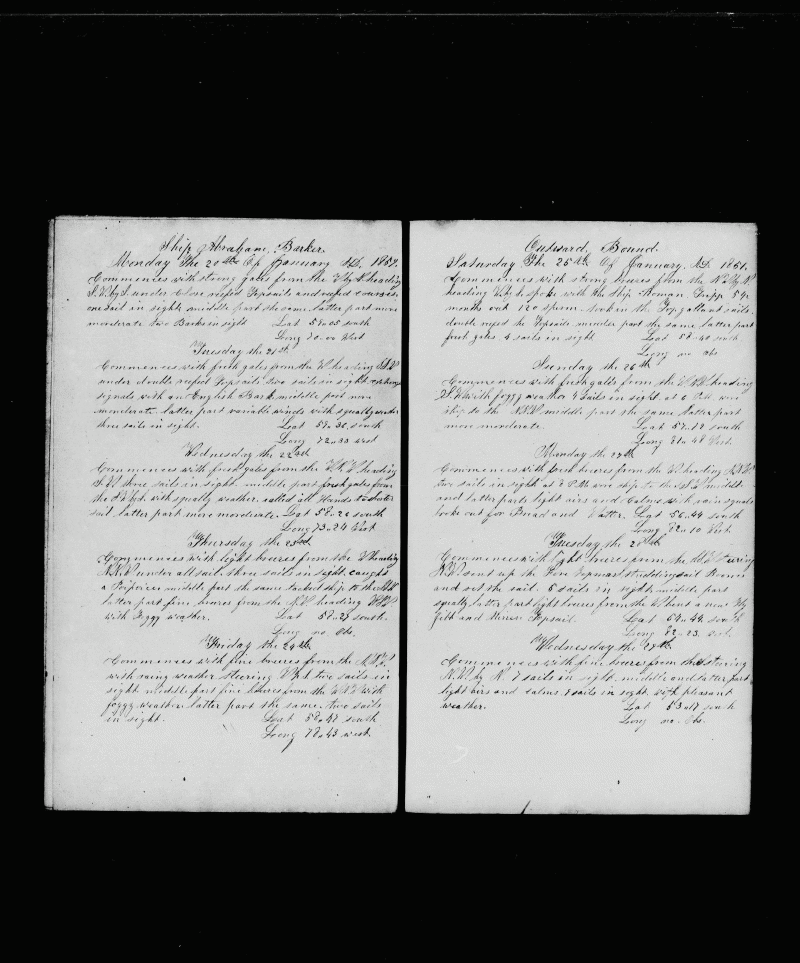 Ship Abraham Barker
Monday The 20th Of January AD. 1862.
Commences with strong gales from the W by N heading
S.W by S under Close reefed Topsails and reefed courses
one sail in sight middle part the same latter part more
morderate two Barks in sight Lat 57-05 south
Long 70-00 West
Tuesday the 21st
Commences with fresh gales from the W heading
under double reefed Topsails two sails in sight
signals with an English Bark middle part more
morderate latter part variable winds with squally weather
three sails in sight. Lat 57-36 south
Long 72-33 west
Wednesday the 22nd
Commences with fresh gales from the heading
S.W three sails in sight middle part fresh gales from
the with squally weather called all Hands to shorten
sail latter part more morderate Lat 58-26 south
Long 73-24 West
Thursday the 23rd
Commences with light breeses from the W heading
under all sail three sails in sight caught
a Porpoise middle part the same tacked ship to the
latter part fine breeses from the heading
with Foggy weather. Lat 58-27 south.
Long no Obs.
Friday the 24th
Commences with fine breeses from the
with rainy weather steering two sails in
sight middle part fine breeses from the with
foggy weather latter part the same two sails
in sight. Lat 58-47 south
Long 78-43 west
Outward Bound
Saturday The 25th Of January. AD. 1862.
Commences with strong breeses from the
heading spoke with the Ship Roman Tripp 54
months out 120 sperm took in the Top gallant sails
double reefed the Topsails middle part the same latter part
fresh gales 4 sails in sight Lat 58-40 south
Long no obs
Sunday the 26th
Commences with fresh gales from the heading
with foggy weather sails in sight at 6 P.M wore
ship to the middle part the same latter part
more morderate. Lat 57-19 south
Long 81-48 West.
Monday the 27th
Commences with fresh breeses from the W heading
two sails in sight at P.M wore ship to the S.W middle
and latter parts light airs and Calms with rain squalls
broke out for Bread and Watter. Lat 56-49 south
Long 82-10 West
Tuesday the 28th
Commences with light breeses from the steering
sent up the Fore Topmast studdingsail Booms
and set the sail. 5 sails in sight middle part
squally latter part light breeses from the bent a new Fly
Jibb and Mizen Topsail. Lat 54-48 south
Long 82-23. west.
Wednesday the 29th
Commences with fine breeses from the steering
N.W. by N. 7 sails in sight. middle and latter part
light airs and calms. sails in sight with pleasant
weather. Lat 53-17 south
Long no. Obs.